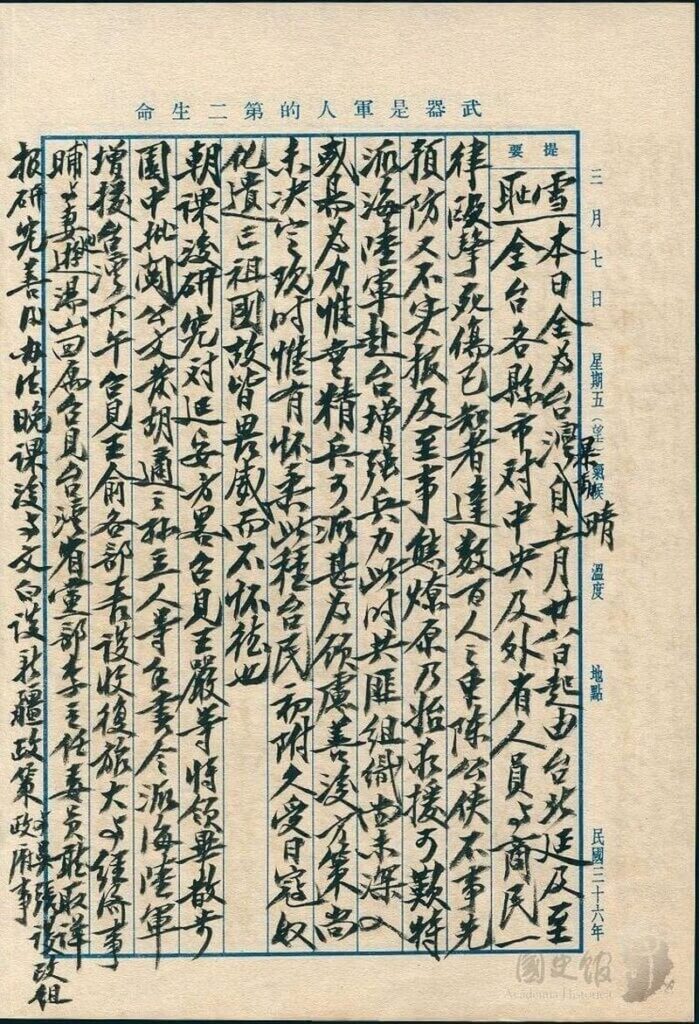 武器是軍人的第二生命
三月七日 星期五（望） 氣候 晴 溫度 地點 民國三十六年
提要
雪本日全為台灣暴動自上月廿八日起由台北延及至
恥全台各縣市對中央及外省人員与商民一
律毆擊死傷已知者達數百人之眾陳公俠不事先
預防又不實報及至事態燎原乃始求援可歎特
派海陸軍赴台增強兵力此時共匪組織尚未深入
或易為力惟無精兵可派甚為顧慮善後方策尚
未決定現時惟有懷柔此種台民初附久受日寇奴
化遺亡祖國故皆畏威而不懷德也
朝課後研究對延安方畧召見王嚴等將領畢散步
園中批閱公文發胡適之孫立人等各書令派海陸軍
增援台灣下午召見王俞各部長談收復旅大与經濟事
晡与妻遊湯山回寓召見台灣省黨部李主任委員聽取詳
報研究善後辦法晚課後与文白談新疆政策与吳張談改組政府事
國史館
Academia Historica